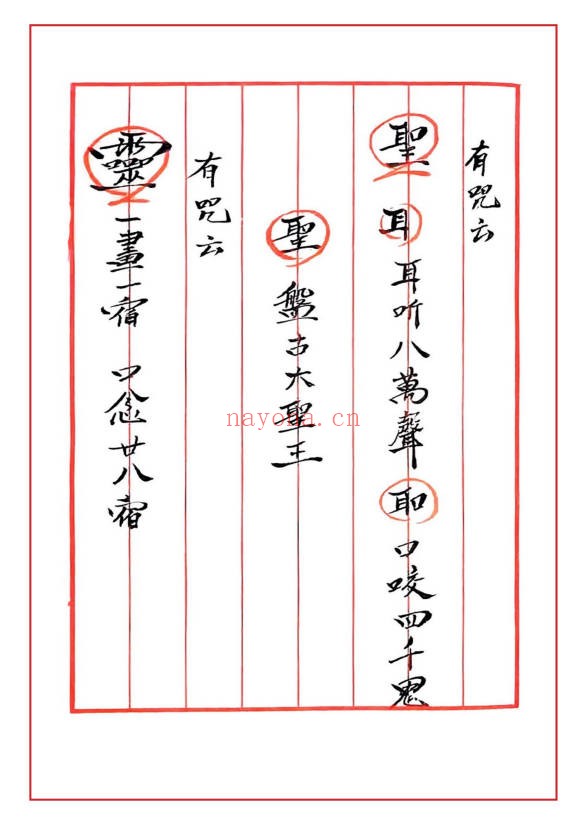 有咒云
聖 耳 耳听八萬聲 耶 口咬四千鬼
聖 盤古大聖王
有咒云
靈 一畫一宿 口念廿八宿
nayona.cn